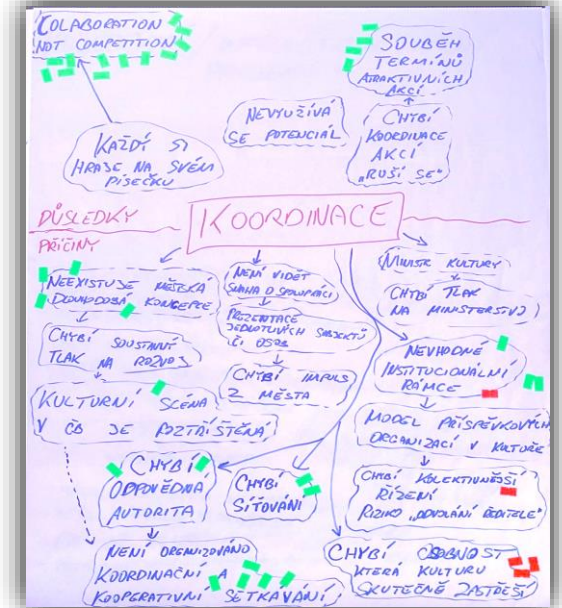 COLABORATION
NOT COMPETITION
SOUBĚH
TERMÍNŮ
ATRAKTIVNÍCH
AKCÍ
NEVYUŽÍVÁ
SE POTENCIÁL
CHYBÍ
KOORDINACE
AKCÍ
„RUŠÍ SE“
KAŽDÝ SI
HRAJE NA SVÉM
PÍSEČKU
DŮSLEDKY
KOORDINACE
PŘÍČINY
NEEXISTUJE MĚSTSKÁ
DLOUHODOBÁ KONCEPCE
CHYBÍ SOUSTAVNÝ
TLAK NA ROZVOJ
KULTURNÍ SCÉNA
V ČB JE ROZTŘÍŠTĚNÁ
NENÍ VIDĚT
SNAHA O SPOLUPRÁCI
PREZENTACE
JEDNOTLIVÝCH SUBJEKTŮ
ČI OSOB
CHYBÍ IMPULS
Z MĚSTA
MINISTR KULTURY
CHYBÍ TLAK
NA MINISTERSTVO
NEVHODNÉ
INSTITUCIONÁLNÍ
RÁMCE
MODEL PŘÍSPĚVKOVÝCH
ORGANIZACÍ V KULTUŘE
CHYBÍ KOLEKTIVNĚJŠÍ
ŘÍZENÍ
RIZIKO „ODVOLÁNÍ ŘEDITELE“
CHYBÍ
ODPOVĚDNÁ
AUTORITA
CHYBÍ
SÍŤOVÁNÍ
NENÍ ORGANIZOVÁNO
KOORDINAČNÍ A
KOOPERATIVNÍ SETKÁVÁNÍ
CHYBÍ OSOBNOST
KTERÁ KULTURU
SKUTEČNĚ ZASTŘEŠÍ